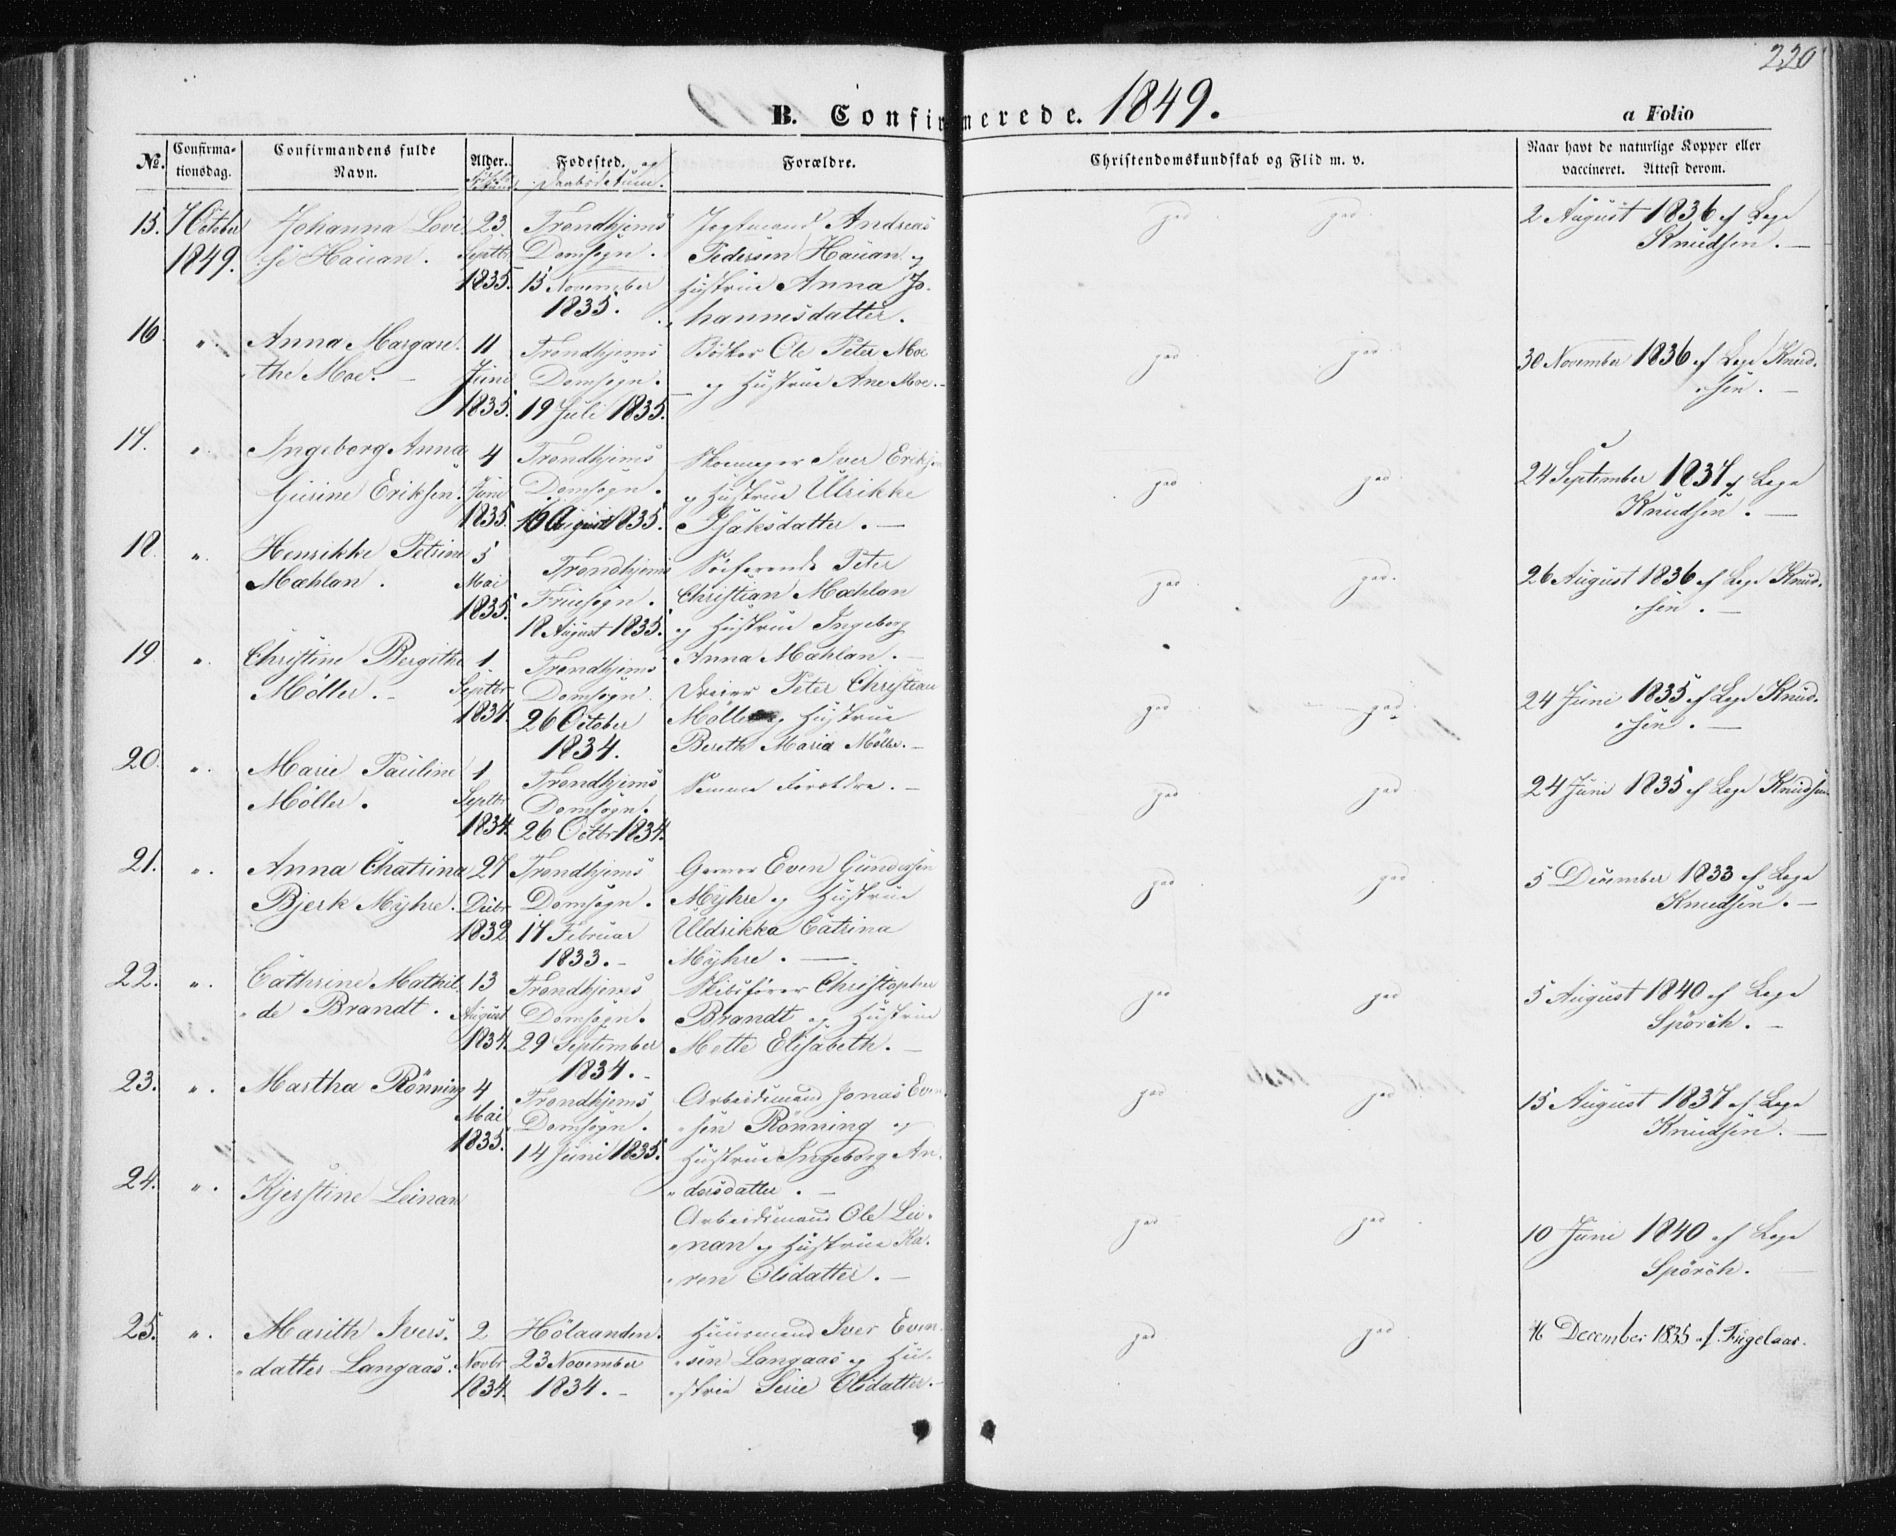 220
B. Confirmerede. 1849.
a Folio
No.
Confirma-
tionsdag.
Confirmandens fulde
Navn.
Alder.
Fodested. og
Daabsdatum.
Forældre.
Christendomskundskab og Flid m. v.
Naar havt de naturlige Kopper eller
vaccineret. Attest derom.
15. 7 October 1849.
Johanna Lovi-
se Hauan.
23 Septbr 1835.
Trondhjems
Domsogn.
15 November
1835.
Andreas
Pedersen Hauan og
Hustrue Anna Jo-
hannesdatter.
god god
2 August 1836 af Læge
Knudsen.
16 "
Anna Margare-
the Moe.
11 Juni 1835.
Trondhjems
Domsogn.
19 Juli 1835.
Bødker Ole Peter Moe
og Hustrue Ane Moe.
god god
30 November 1836 af Læge Knud-
sen.
17. "
Ingeborg Anna
Gurine Eriksen.
4 Juni 1835.
Trondhjems
Domsogn.
16 August 1835.
Skomager Iver Eriksen
og Hustrue Ulrikke
Isaksdatter.
god god
24 September 1837 af Læge
Knudsen.
18 "
Henrikke Petrine
Mæhlan.
5 Mai 1835.
Trondhjems
Fruesogn.
18 August 1835.
Søefarende Peter
Christian Mæhlan
og Hustrue Ingeborg
Anna Mæhlan.
god god.
26 August 1836 af Læge Knud-
sen.
19 "
Christine Bergithe
Möller.
1 Septbr 1834.
Trondhjems
Domsogn.
26 October
1834.
Dreier Peter Christian
Möller og Hustrue
Bereth Maria Möller.
god god
24 Juni 1835 af Læge Knud-
sen.
20. "
Marie Pauline
Möller.
1 Septbr 1834.
Trondhjems
Domsogn.
26 Octbr 1834.
Samme Forældre.
god god
24 Juni 1835 af Læge Knudsen
21. "
Anna Chatrina
Bjerk Myhre.
27 Decbr 1832
Trondhjems
Domsogn.
17 Februar
1833.
Garver Even Gundersen
Myhre og Hustrue
Uldrikka Catrina
Myhre.
god god
5 December 1833 af Læge
Knudsen.
22. "
Cathrine Mathil-
de Brandt.
13 August 1834.
Trondhjems
Domsogn.
29 September
1834.
Skibsfører Christopher
Brandt og Hustrue
Mette Elisabeth.
god god
5 August 1840 af Læge
Spörch.
23. "
Martha Rönning
4 Mai 1835.
Trondhjems
Domsogn.
14 Juni 1835.
Arbeidsmand Jonas Even-
sen Rönning og
Hustrue Ingeborg An-
dersdatter.
god god
15 August 1837 af Læge
Knudsen.
24. "
Kjerstine Leinan
Arbeidsmand Ole Lei-
nan og Hustrue Ka-
ren Olsdatter.
god god
10 Juni 1840 af Læge
Spörch.
25. "
Marith Ivers-
datter Langaas.
2 Novbr 1834.
Hölaanden.
23 November
1834.
Huusmand Iver Even-
sen Langaas og Hu-
strue Olsdatter.
god god
16 December 1835 af. Fugelaas.